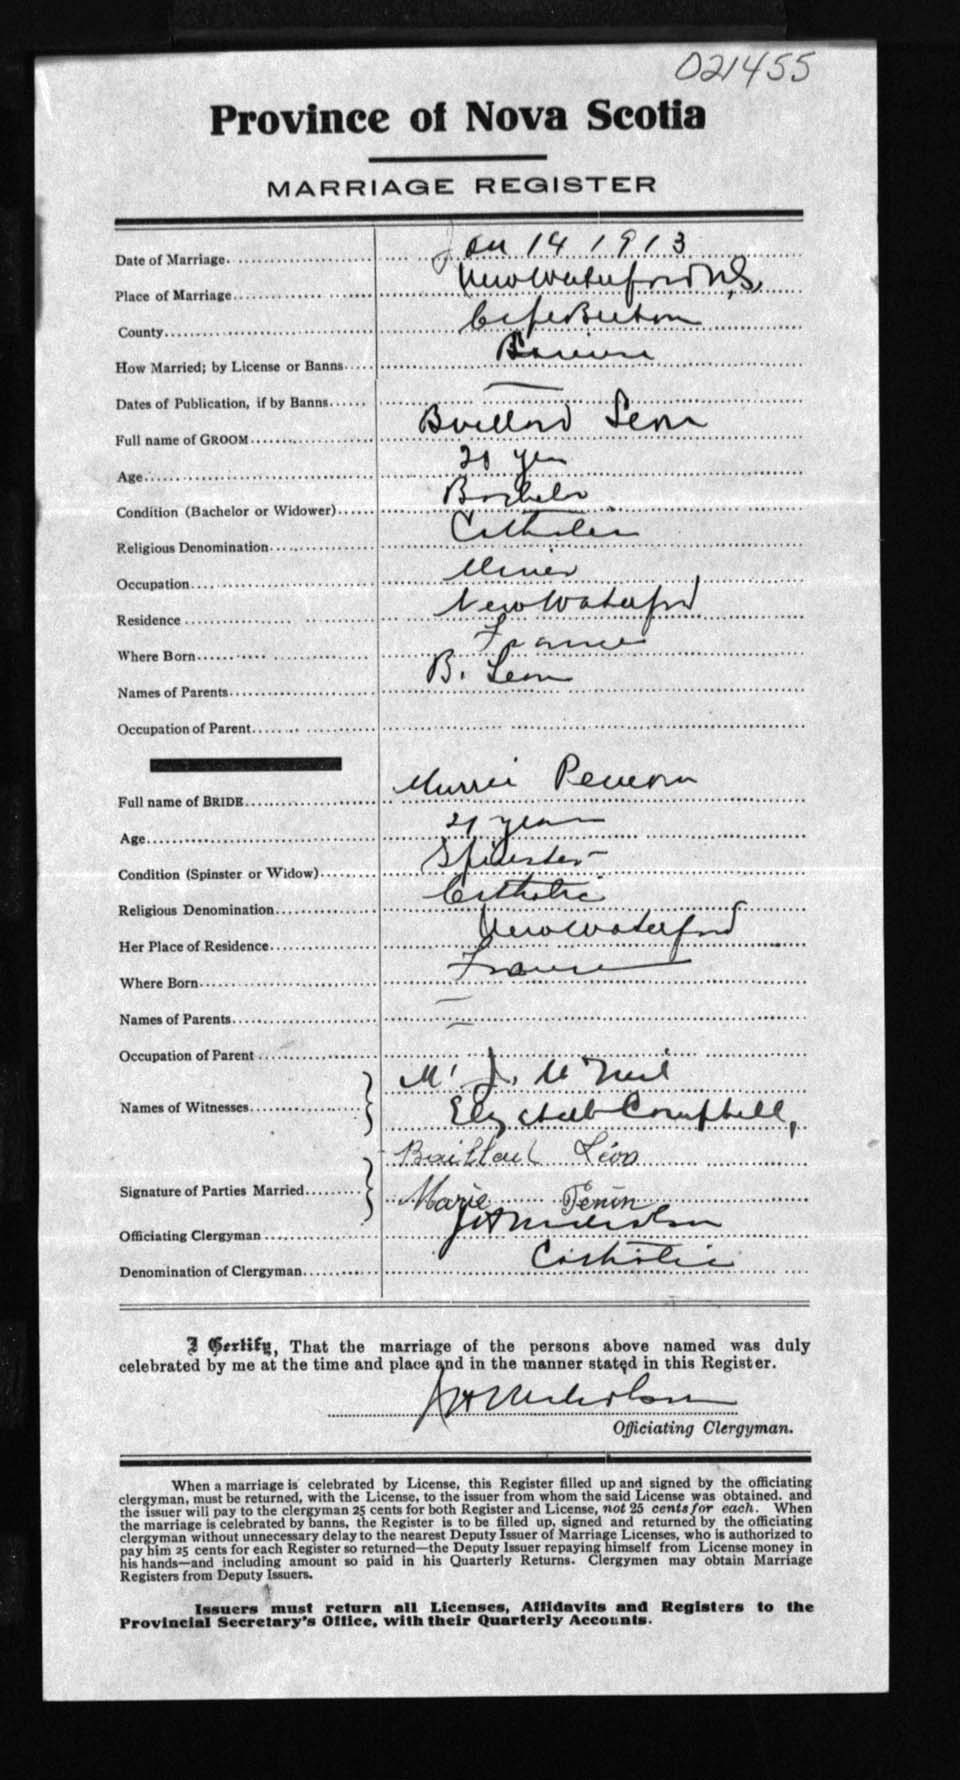 021455
Province of Nova Scotia
MARRIAGE REGISTER
Date of Marriage Jan 14 1913
Place of Marriage New Waterford N.S.
County Cape Breton
How Married; by License or Banns
Dates of Publication, if by Banns —
Full name of GROOM Leon
Age
Condition (Bachelor or Widower) Bachelor
Religious Denomination Catholic
Occupation Miner
Residence New Waterford
Where Born France
Names of Parents B. Leon
Occupation of Parent
Full name of BRIDE
Age 21 years
Condition (Spinster or Widow) Spinster
Religious Denomination Catholic
Her Place of Residence New Waterford
Where Born France
Names of Parents —
Occupation of Parent —
Names of Witnesses M. J. McNeil
Elizabeth Campbell,
Signature of Parties Married Léon
Marie
Officiating Clergyman JH Nicholson
Denomination of Clergyman Catholic
I Certify, That the marriage of the persons above named was duly
celebrated by me at the time and place and in the manner stated in this Register.
JH Nicholson
Officiating Clergyman.
When a marriage is celebrated by License, this Register filled up and signed by the officiating
clergyman, must be returned, with the License, to the issuer from whom the said License was obtained, and
the issuer will pay to the clergyman 25 cents for both Register and License, not 25 cents for each. When
the marriage is celebrated by banns, the Register is to be filled up, signed and returned by the officiating
clergyman without unnecessary delay to the nearest Deputy Issuer of Marriage Licenses, who is authorized to
pay him 25 cents for each Register so returned—the Deputy Issuer repaying himself from License money in
his hands—and including amount so paid in his Quarterly Returns. Clergymen may obtain Marriage
Registers from Deputy Issuers.
Issuers must return all Licenses, Affidavits and Registers to the
Provincial Secretary's Office, with their Quarterly Accounts.